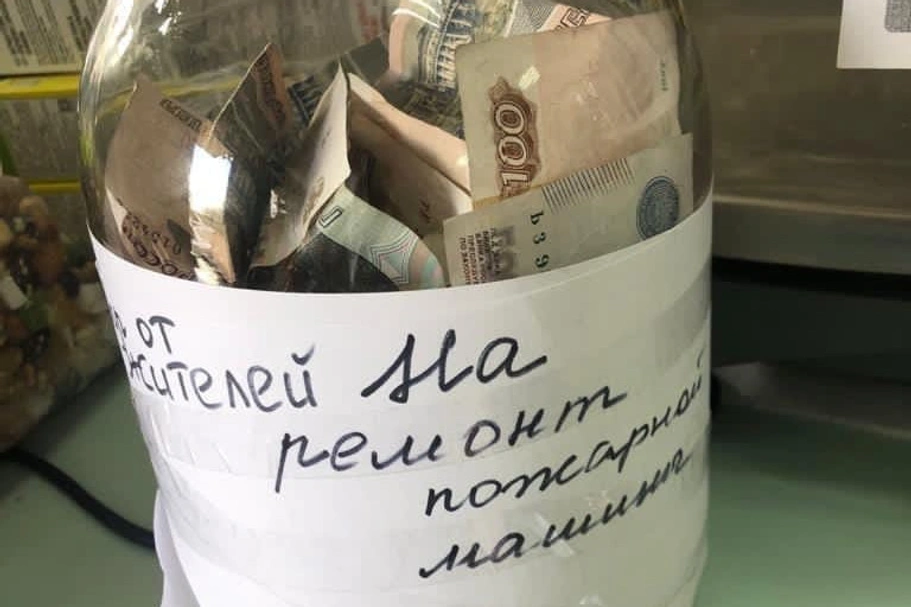 от
жителей На
ремонт
пожарной
машины
100
ЬЗ 9